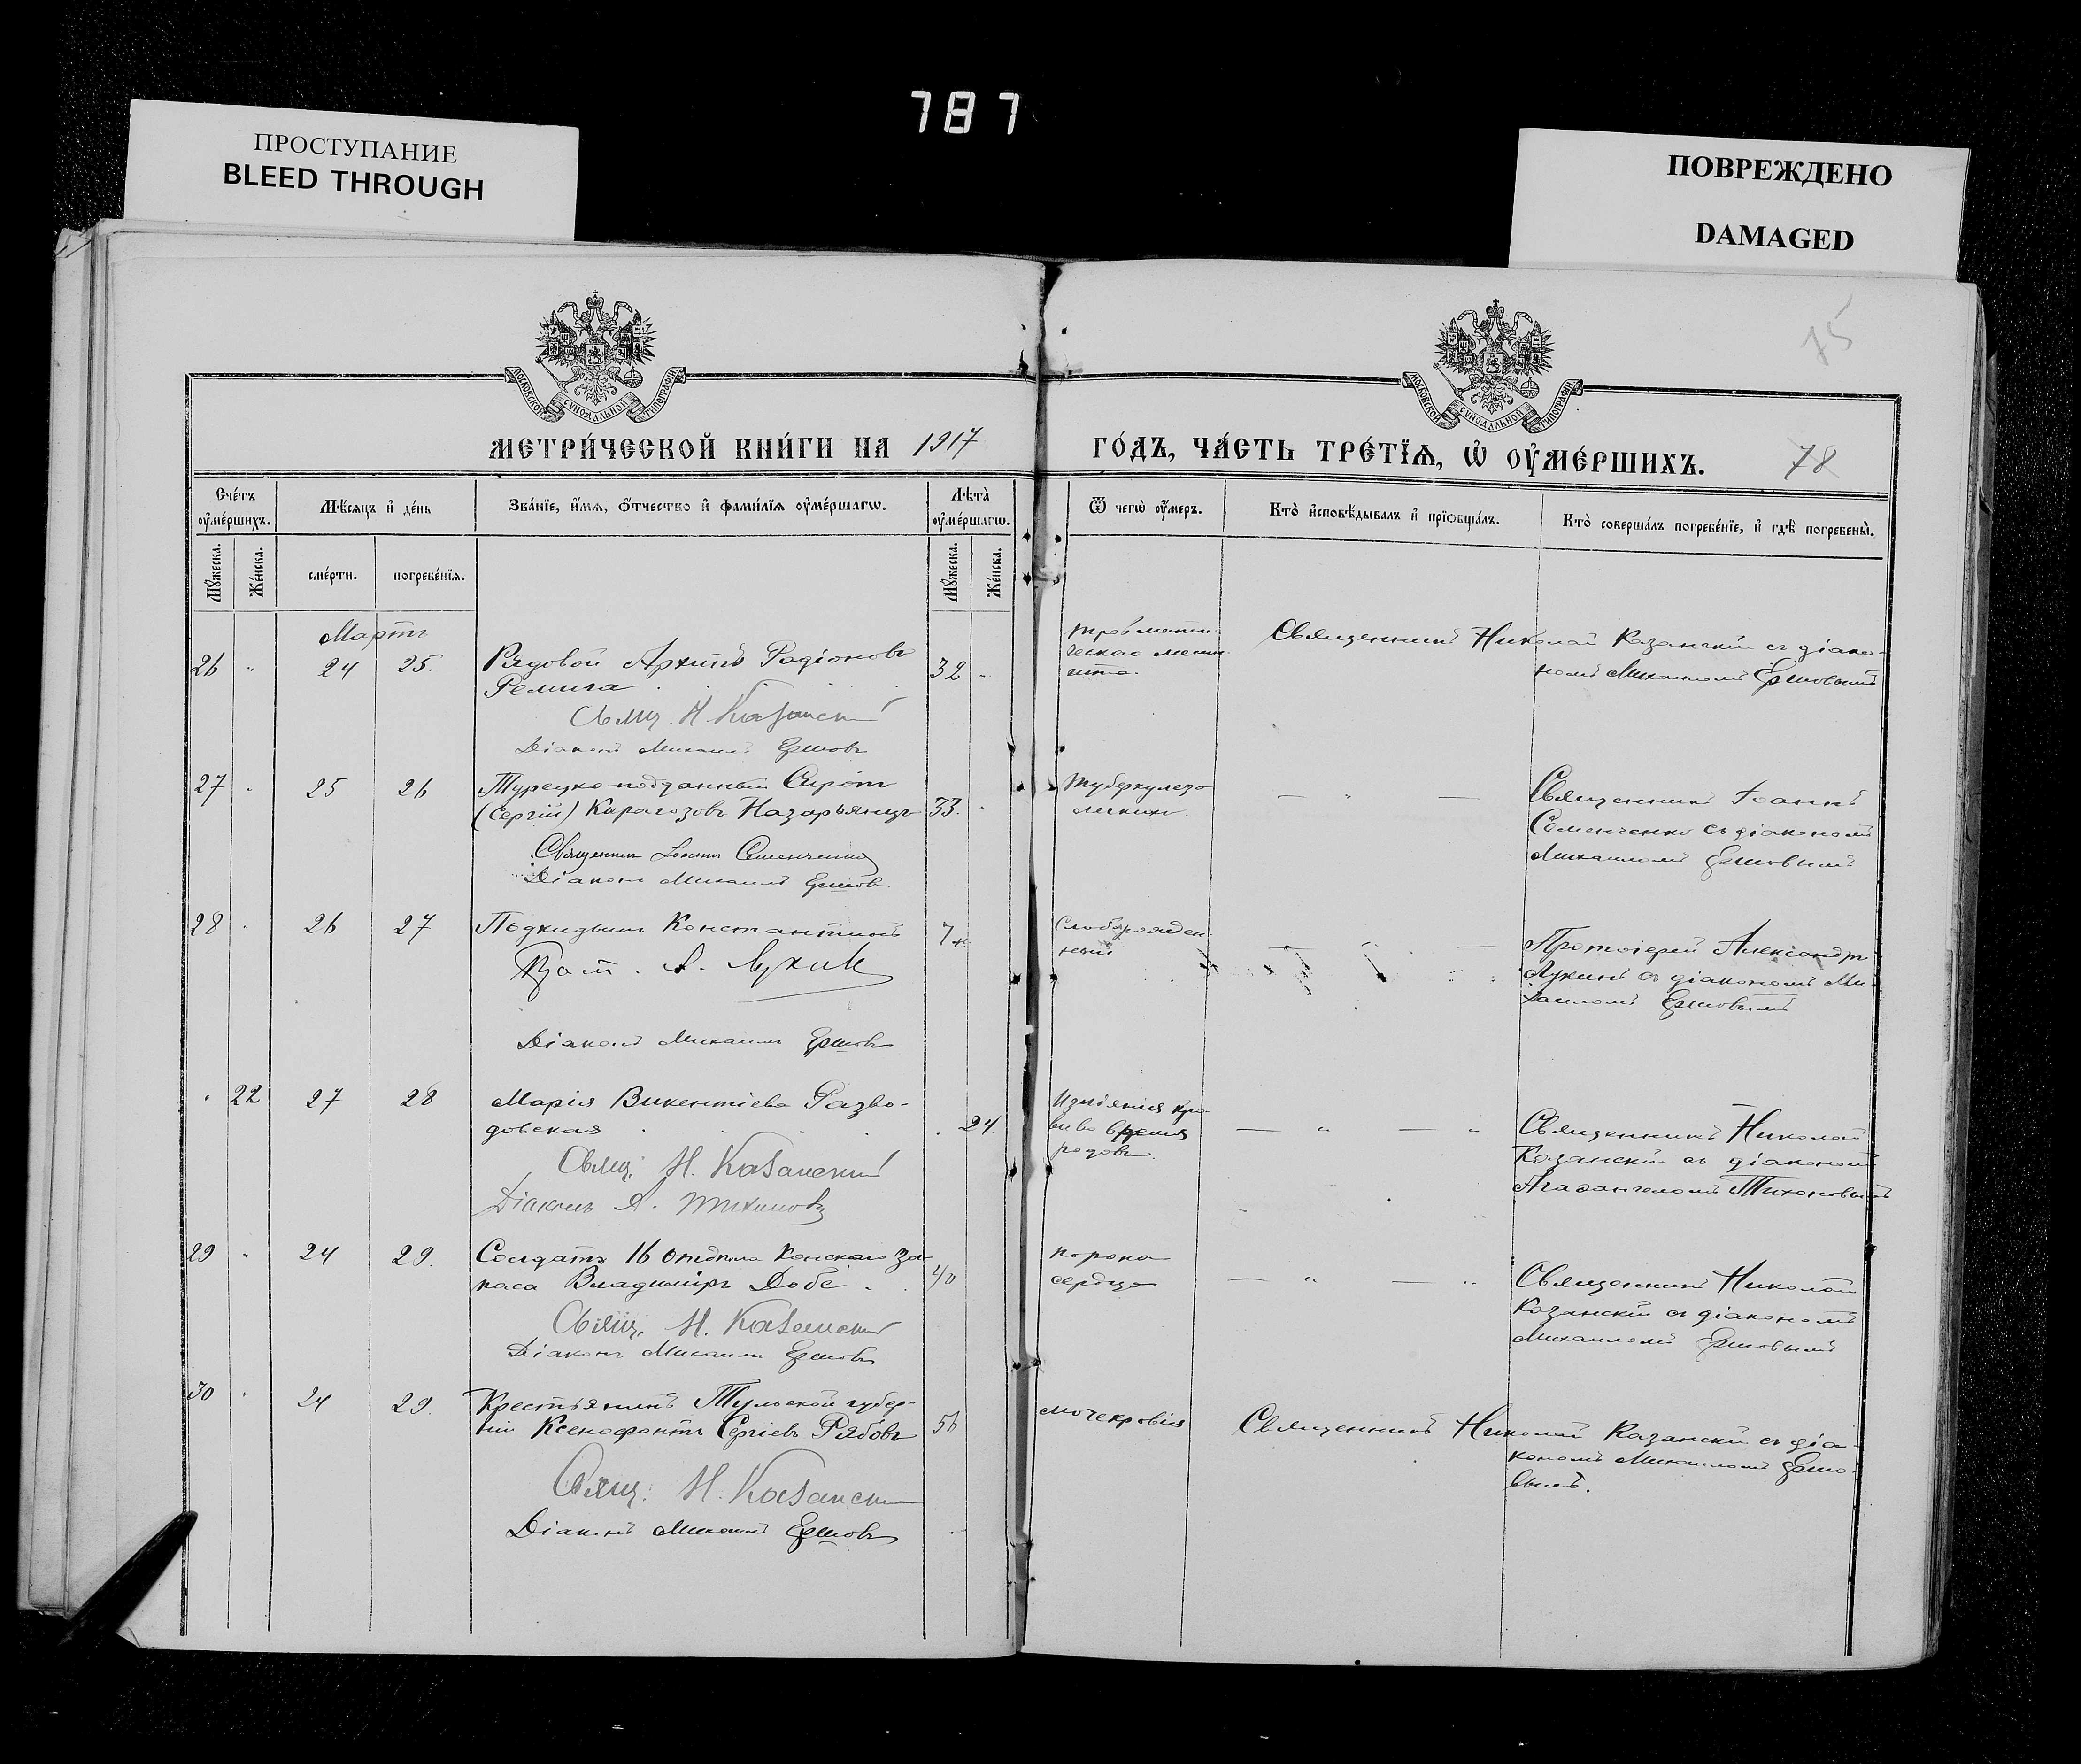 787
ПРОСТУПАНИЕ
BLEED THROUGH
ПОВРЕЖДЕНО
DAMAGED
75
МОСКОВСКОЙ СѴНОДАЛЬНОЙ ТИПОГРАФІИ
МОСКОВСКОЙ СѴНОДАЛЬНОЙ ТИПОГРАФІИ
МЕТРИ́ЧЕСКОЙ КНИ́ГИ НА 1917 ГО́ДЪ, ЧА́СТЬ ТРЕ́ТЇѦ, Ѡ҆ ОУ҆МЕ́РШИХЪ. 78
Сче́тъ оу҆ме́ршихъ.
Мѣ́сяцъ и҆ де́нь
Зва́нїе, и҆́мѧ, ѻ҆́тчество и҆ фами́лїѧ оу҆ме́ршагѡ.
Лѣ́та оу҆ме́ршагѡ.
Ѿ чегѡ̀ оу҆́меръ.
Кто̀ и҆сповѣ́дывалъ и҆ прїѡбща́лъ.
Кто̀ соверша́лъ погребе́нїе, и҆ гдѣ̀ погребены̀.
Мꙋ́жеска.
Же́нска.
сме́рти.
погребе́нїѧ.
Мꙋ́жеска.
Же́нска.
Мартъ
26 " 24 25. Рядовой Архипъ Радіоновъ 32 "
Ремига
Свящ. Н. Казанскій
Діаконъ Михаилъ Ершовъ
Травмати-
ческаго менин-
гита.
Священникъ Николай Казанскій съ діако-
номъ Михаиломъ Ершовымъ
27 " 25 26 Турецко-подданный Сиропъ
(Сергій) Карагозовъ Назарьянцъ 33. "
Священник Іоанн Семенченко
Діаконъ Михаилъ Ершовъ
Туберкулезъ
легкихъ.
— " —
Священникъ Іоаннъ
Семенченко съ діакономъ
Михаиломъ Ершовымъ
28 " 26 27 Подкидышъ Константинъ 7
Прот. А. Лукин
Діаконъ Михаилъ Ершовъ
Слаборожден-
ный
— " —
Протоіерей Александръ
Лукинъ съ діакономъ Ми-
хаиломъ Ершовымъ
" 22 27 28 Марія Викентіева Разво-
довская " 24.
Свящ. Н. Казанскій
Діаконъ А. Тихоновъ
Изліянія кро-
ви во время
родовъ.
— " — "
Священникъ Николай
Казанскій съ діакономъ
Агаѳангеломъ Тихоновымъ
29 " 24 29. Солдатъ 16 отдѣла Конскаго за-
паса Владиміръ Добе 40
Свящ. Н. Казанскій
Діаконъ Михаилъ Ершовъ
порока
сердца
— " — "
Священникъ Николай
Казанскій съ діакономъ
Михаиломъ Ершовымъ
30 " 24 29. Крестьянинъ Тульской губер-
ніи Ксенофонтъ Сергіевъ Рябовъ 56
Свящ. Н. Казанскій
Діаконъ Михаилъ Ершовъ
мочекровія
Священникъ Николай Казанскій съ діа-
кономъ Михаиломъ Ершо-
вымъ.